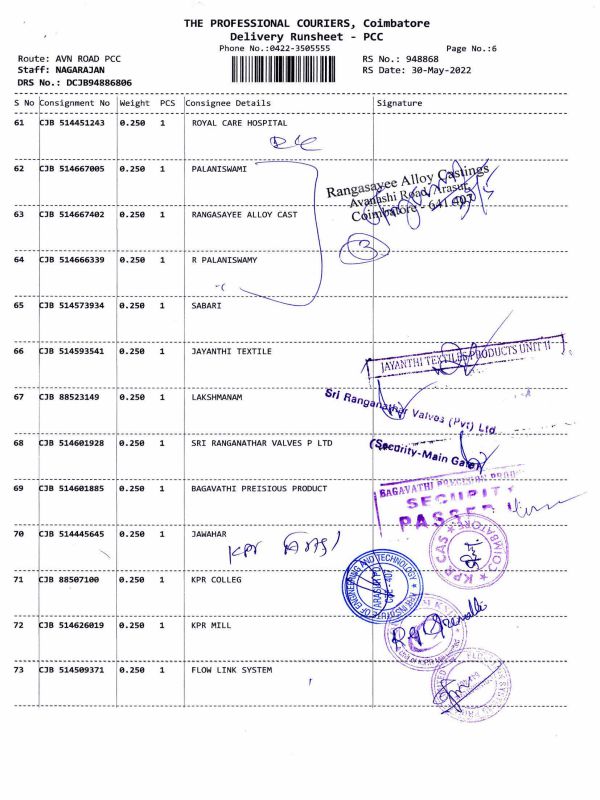 THE PROFESSIONAL COURIERS, Coimbatore
Delivery Runsheet - PCC
Phone No.:0422-3505555
Page No.:6
Route: AVN ROAD PCC
RS No.: 948868
Staff: NAGARAJAN
RS Date: 30-May-2022
DRS No.: DCJB94886806
S No Consignment No Weight PCS Consignee Details Signature
61 CJB 514451243 0.250 1 ROYAL CARE HOSPITAL
62 CJB 514667005 0.250 1 PALANISWAMI
Rangasayee Alloy Castings
Avanashi Road, Arasur,
Coimbatore - 641 407
63 CJB 514667402 0.250 1 RANGASAYEE ALLOY CAST
3
64 CJB 514666339 0.250 1 R PALANISWAMY
65 CJB 514573934 0.250 1 SABARI
66 CJB 514593541 0.250 1 JAYANTHI TEXTILE
JAYANTHI TEXTILES PRODUCTS UNIT II
67 CJB 88523149 0.250 1 LAKSHMANAM
Sri Ranganathar Valves (Pvt) Ltd
68 CJB 514601928 0.250 1 SRI RANGANATHAR VALVES P LTD
(Security-Main Gate)
69 CJB 514601885 0.250 1 BAGAVATHI PREISIOUS PRODUCT
BAGAVATHI PRECISION PROD
SECURITY
PASSED
70 CJB 514445645 0.250 1 JAWAHAR
KPR
KPR CAS COIMBATORE
71 CJB 88507100 0.250 1 KPR COLLEG
KPR INSTITUTE OF ENGINEERING AND TECHNOLOGY
72 CJB 514626019 0.250 1 KPR MILL
73 CJB 514509371 0.250 1 FLOW LINK SYSTEM